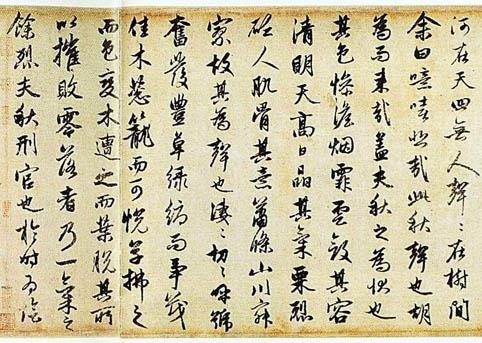 河在天四無人聲〻在樹間
余曰噫嘻悲哉此秋聲也胡
為而来哉盖夫秋之為状也
其色惨澹烟霏雲斂其容
清明天高日晶其氣栗烈
砭人肌骨其意蕭條山川寂
寥故其為聲也凄〻切〻呼號
奮發豐草緑縟而争茂
佳木葱籠而可悦草拂之
而色變木遭之而葉脱其所
以摧敗零落者乃一氣之
餘烈夫秋刑官也於時為陰